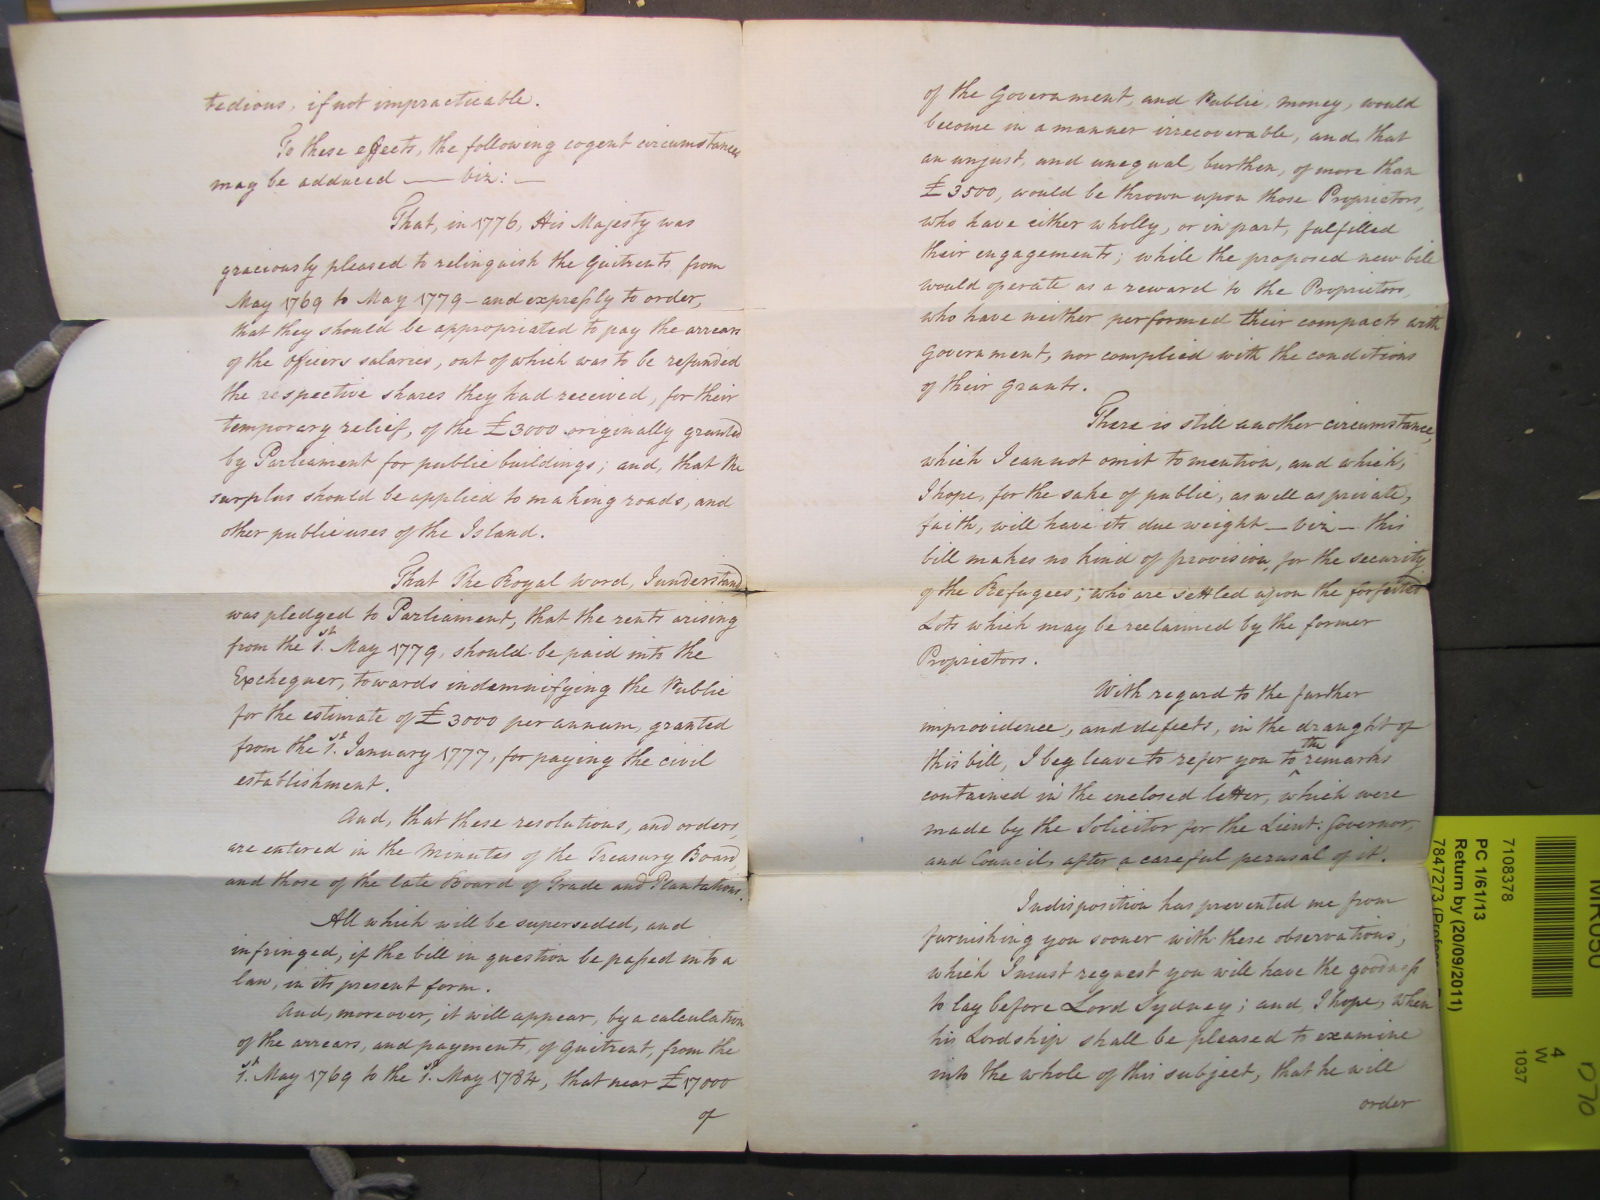 tedious, if not impracticable.
To these effects, the following cogent circumstances
may be adduced — viz: —
That, in 1776, His Majesty was
graciously pleased to relinquish the Quitrents from
May 1769 to May 1779 - and expressly to order,
that they should be appropriated to pay the arrears
of the Officers salaries, out of which was to be refunded
the respective shares they had received, for their
temporary relief, of the £3000 originally granted
by Parliament for public buildings; and, that the
surplus should be applied to making roads, and
other public uses of the Island.
That The Royal word, I understand
was pledged to Parliament, that the rents arising
from the 1st. May 1779, should be paid into the
Exchequer, towards indemnifying the Public
for the estimate of £3000 per annum, granted
from the 1st. January 1777, for paying the civil
establishment.
And, that these resolutions, and orders,
are entered in the Minutes of the Treasury Board
and those of the late Board of Trade and Plantations.
All which will be superseded, and
infringed, if the bill in question be passed into a
law, in its present form.
And, moreover, it will appear, by a calculation
of the arrears, and payments, of Quitrent, from the
1st. May 1769 to the 1st. May 1784, that near £17000
of
of the Government, and Public, money, would
become in a manner irrecoverable, and that
an unjust, and unequal, burthen, of more than
£3500, would be thrown upon those Proprietors,
who have either wholly, or in part, fulfilled
their engagements; while the proposed new bill
would operate as a reward to the Proprietors,
who have neither performed their compacts with
Government, nor complied with the conditions
of their grants.
There is still another circumstance,
which I cannot omit to mention, and which,
I hope, for the sake of public, as well as private,
faith, will have its due weight — viz — this
bill makes no kind of provision for the security
of the Refugees; who are settled upon the forfeited
Lots which may be reclaimed by the former
Proprietors.
With regard to the further
improvidence, and defects, in the draught of
this bill, I beg leave to refer you to the remarks
contained in the enclosed letter, which were
made by the Solicitor for the Lieut: Governor,
and Council, after a careful perusal of it.
Indisposition has prevented me from
furnishing you sooner with these observations,
which I must request you will have the goodness
to lay before Lord Sydney; and, I hope, when
his Lordship shall be pleased to examine
into the whole of this subject, that he will
order
7108378
PC 1/61/13
Return by (20/09/2011)
4
W
1037
MR050